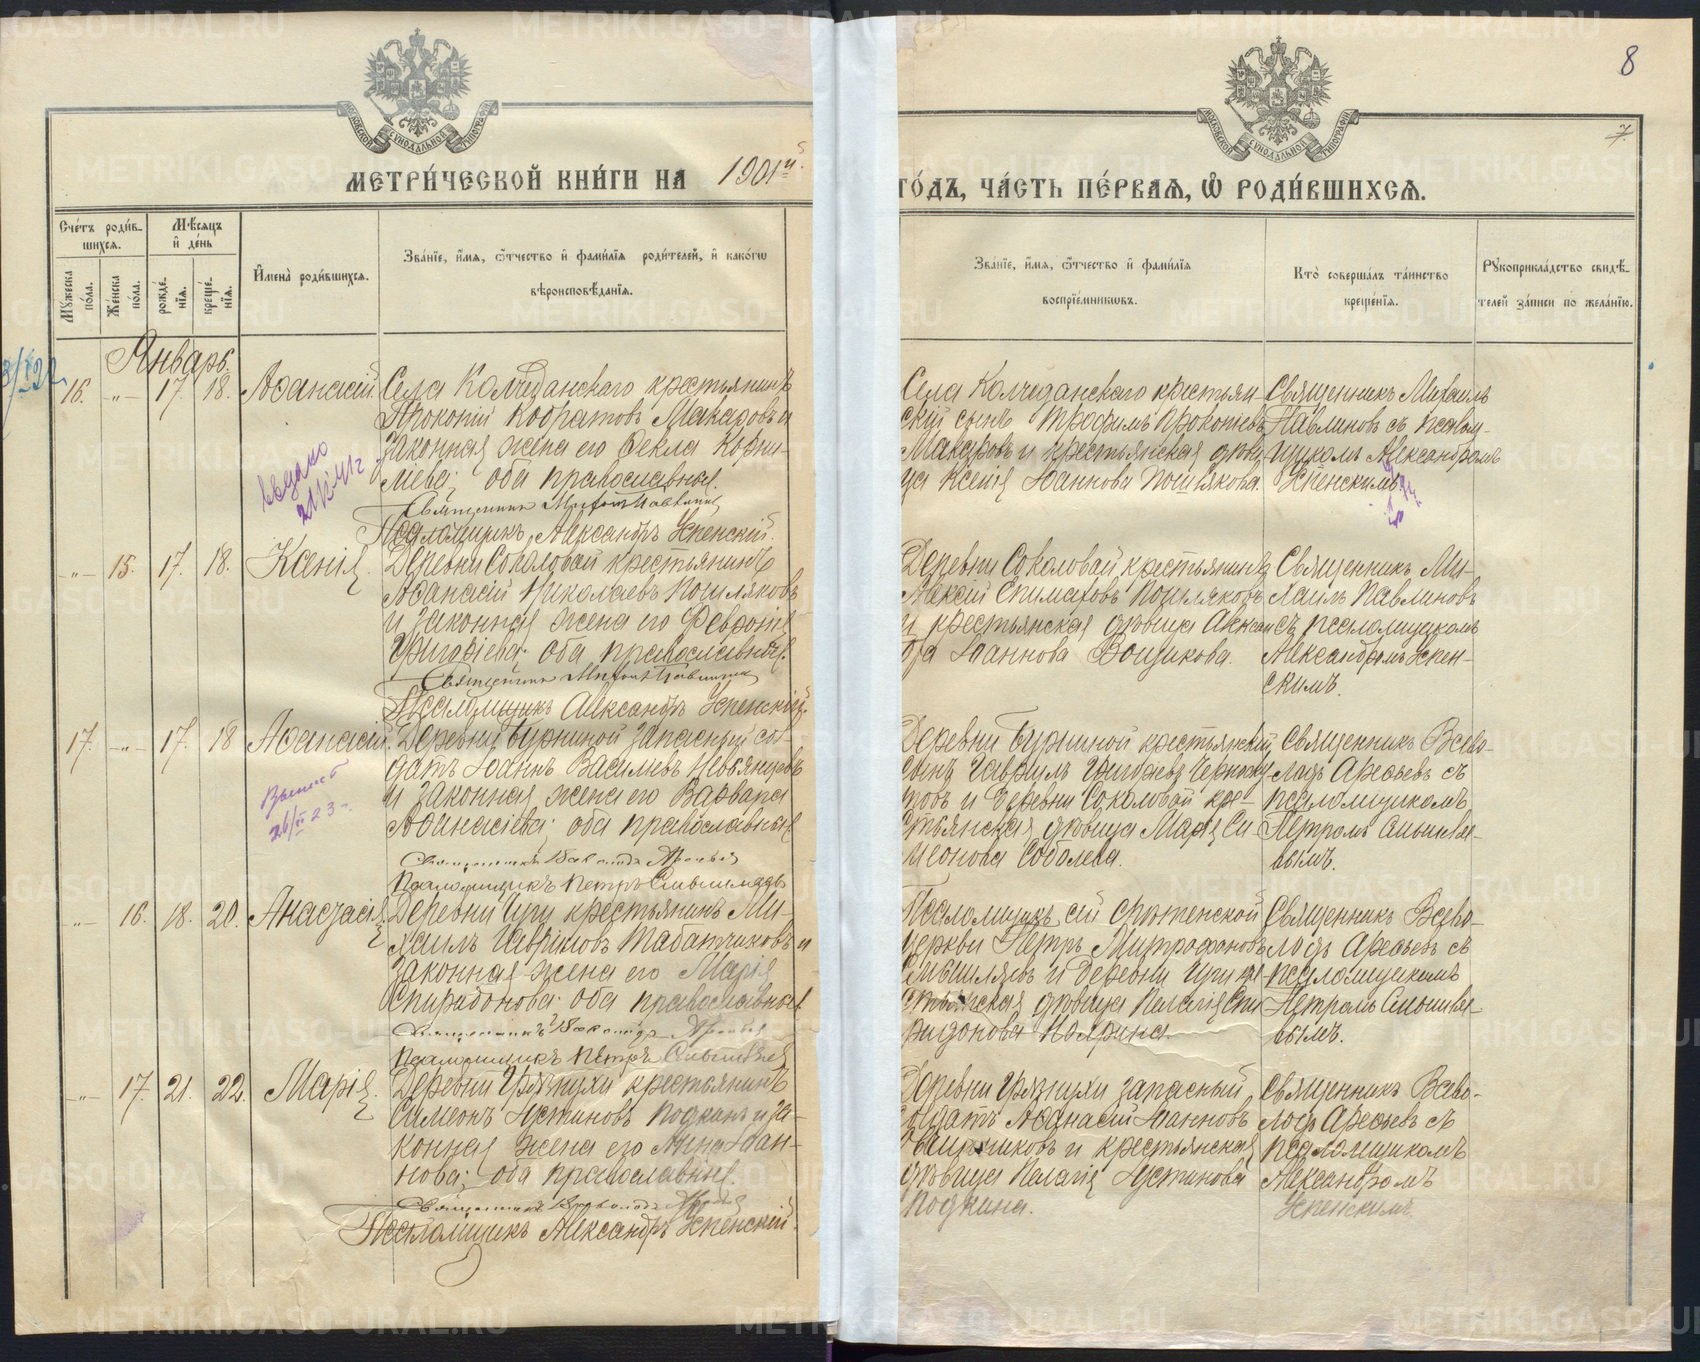 8
7
МОСКОВСКОЙ СѴНОДАЛЬНОЙ ТИПОГРАФІИ
МОСКОВСКОЙ СѴНОДАЛЬНОЙ ТИПОГРАФІИ
МЕТРИ́ЧЕСКОЙ КНИ́ГИ НА 1901й
ГО́ДЪ, ЧА́СТЬ ПЕ́РВАѦ, Ѡ҆ РОДИ́ВШИХСѦ.
Сче́тъ роди́в-
шихсѧ.
Мѣ́сѧцъ
и҆ де́нь
Мꙋ́жеска
по́ла.
Же́нска
по́ла.
рожде́-
нїѧ.
креще́-
нїѧ.
И҆мена̀ роди́вшихсѧ.
Зва́нїе, и҆́мѧ, ѻ҆́тчество и҆ фами́лїѧ роди́телей, и҆ како́гѡ
вѣроисповѣ́данїѧ.
Зва́нїе, и҆́мѧ, ѻ҆́тчество и҆ фами́лїѧ
воспрїе́мникѡвъ.
Кто̀ соверша́лъ та́инство
креще́нїѧ.
Рꙋкоприкла́дство свидѣ́-
телей за́писи по жела́нїю.
Январь.
16. -„- 17. 18. Аѳанасій.
Села Колчеданскаго крестьянинъ
Прокопій Кодратовъ Макаровъ и
законная жена его Ѳекла Корни-
ліева; оба православные.
Священникъ Михаилъ Павлиновъ
Псаломщикъ Александръ Успенскій.
Села Колчеданскаго крестьян-
скій сынъ Трофимъ Прокопьевъ
Макаровъ и крестьянская дѣви-
ца Ксенія Іоаннова Пошлякова.
Священникъ Михаилъ
Павлиновъ съ псалом-
щикомъ Александромъ
Успенскимъ.
-„- 15. 17. 18. Ксенія.
Деревни Соколовой крестьянинъ
Аѳанасій Николаевъ Пошляковъ
и законная жена его Февронія
Григоріева; оба православные.
Священникъ Михаилъ Павлиновъ
Псаломщикъ Александръ Успенскій.
Деревни Соколовой крестьянинъ
Алексій Епимаховъ Пошляковъ
и крестьянская дѣвица
Іоаннова Вощикова.
Священникъ Ми-
хаилъ Павлиновъ
съ псаломщикомъ
Александромъ Успен-
скимъ.
17. -„- 17. 18 Аѳанасій.
Деревни Бурниной запасный сол-
датъ Іоаннъ Васильевъ
и законная жена его Варвара
Аѳанасіева; оба православные.
Священникъ Всеволодъ Арефьевъ
Псаломщикъ Петръ Смышляевъ
Деревни Бурниной крестьянскій
сынъ Гавріилъ Григорьевъ
и деревни Соколовой кре-
стьянская дѣвица Марія Си-
меонова Соболева.
Священникъ Всево-
лодъ Арефьевъ съ
псаломщикомъ
Петромъ Смышляе-
вымъ.
-„- 16. 18. 20. Анастасія.
Деревни крестьянинъ Ми-
хаилъ Гавриловъ Табатчиковъ и
законная жена его Марія
Спиридонова; оба православные.
Священникъ Всеволодъ Арефьевъ
Псаломщикъ Петръ Смышляевъ
Псаломщикъ сей Срѣтенской
церкви Петръ Митрофановъ
Смышляевъ и деревни кре-
стьянская дѣвица Пелагія Спи-
ридонова
Священникъ Всево-
лодъ Арефьевъ съ
псаломщикомъ
Петромъ Смышляе-
вымъ.
-„- 17. 21. 22. Марія.
Деревни Грязнухи крестьянинъ
Симеонъ Устиновъ Подкинъ и за-
конная жена его Анна Іоан-
нова; оба православные.
Священникъ Всеволодъ Арефьевъ
Псаломщикъ Александръ Успенскій.
Деревни Грязнухи запасный
солдатъ Аѳанасій Іоанновъ
и крестьянская
дѣвица Пелагія Устинова
Подкина.
Священникъ Всево-
лодъ Арефьевъ съ
псаломщикомъ
Александромъ
Успенскимъ.
METRIKI.GASO-URAL.RU